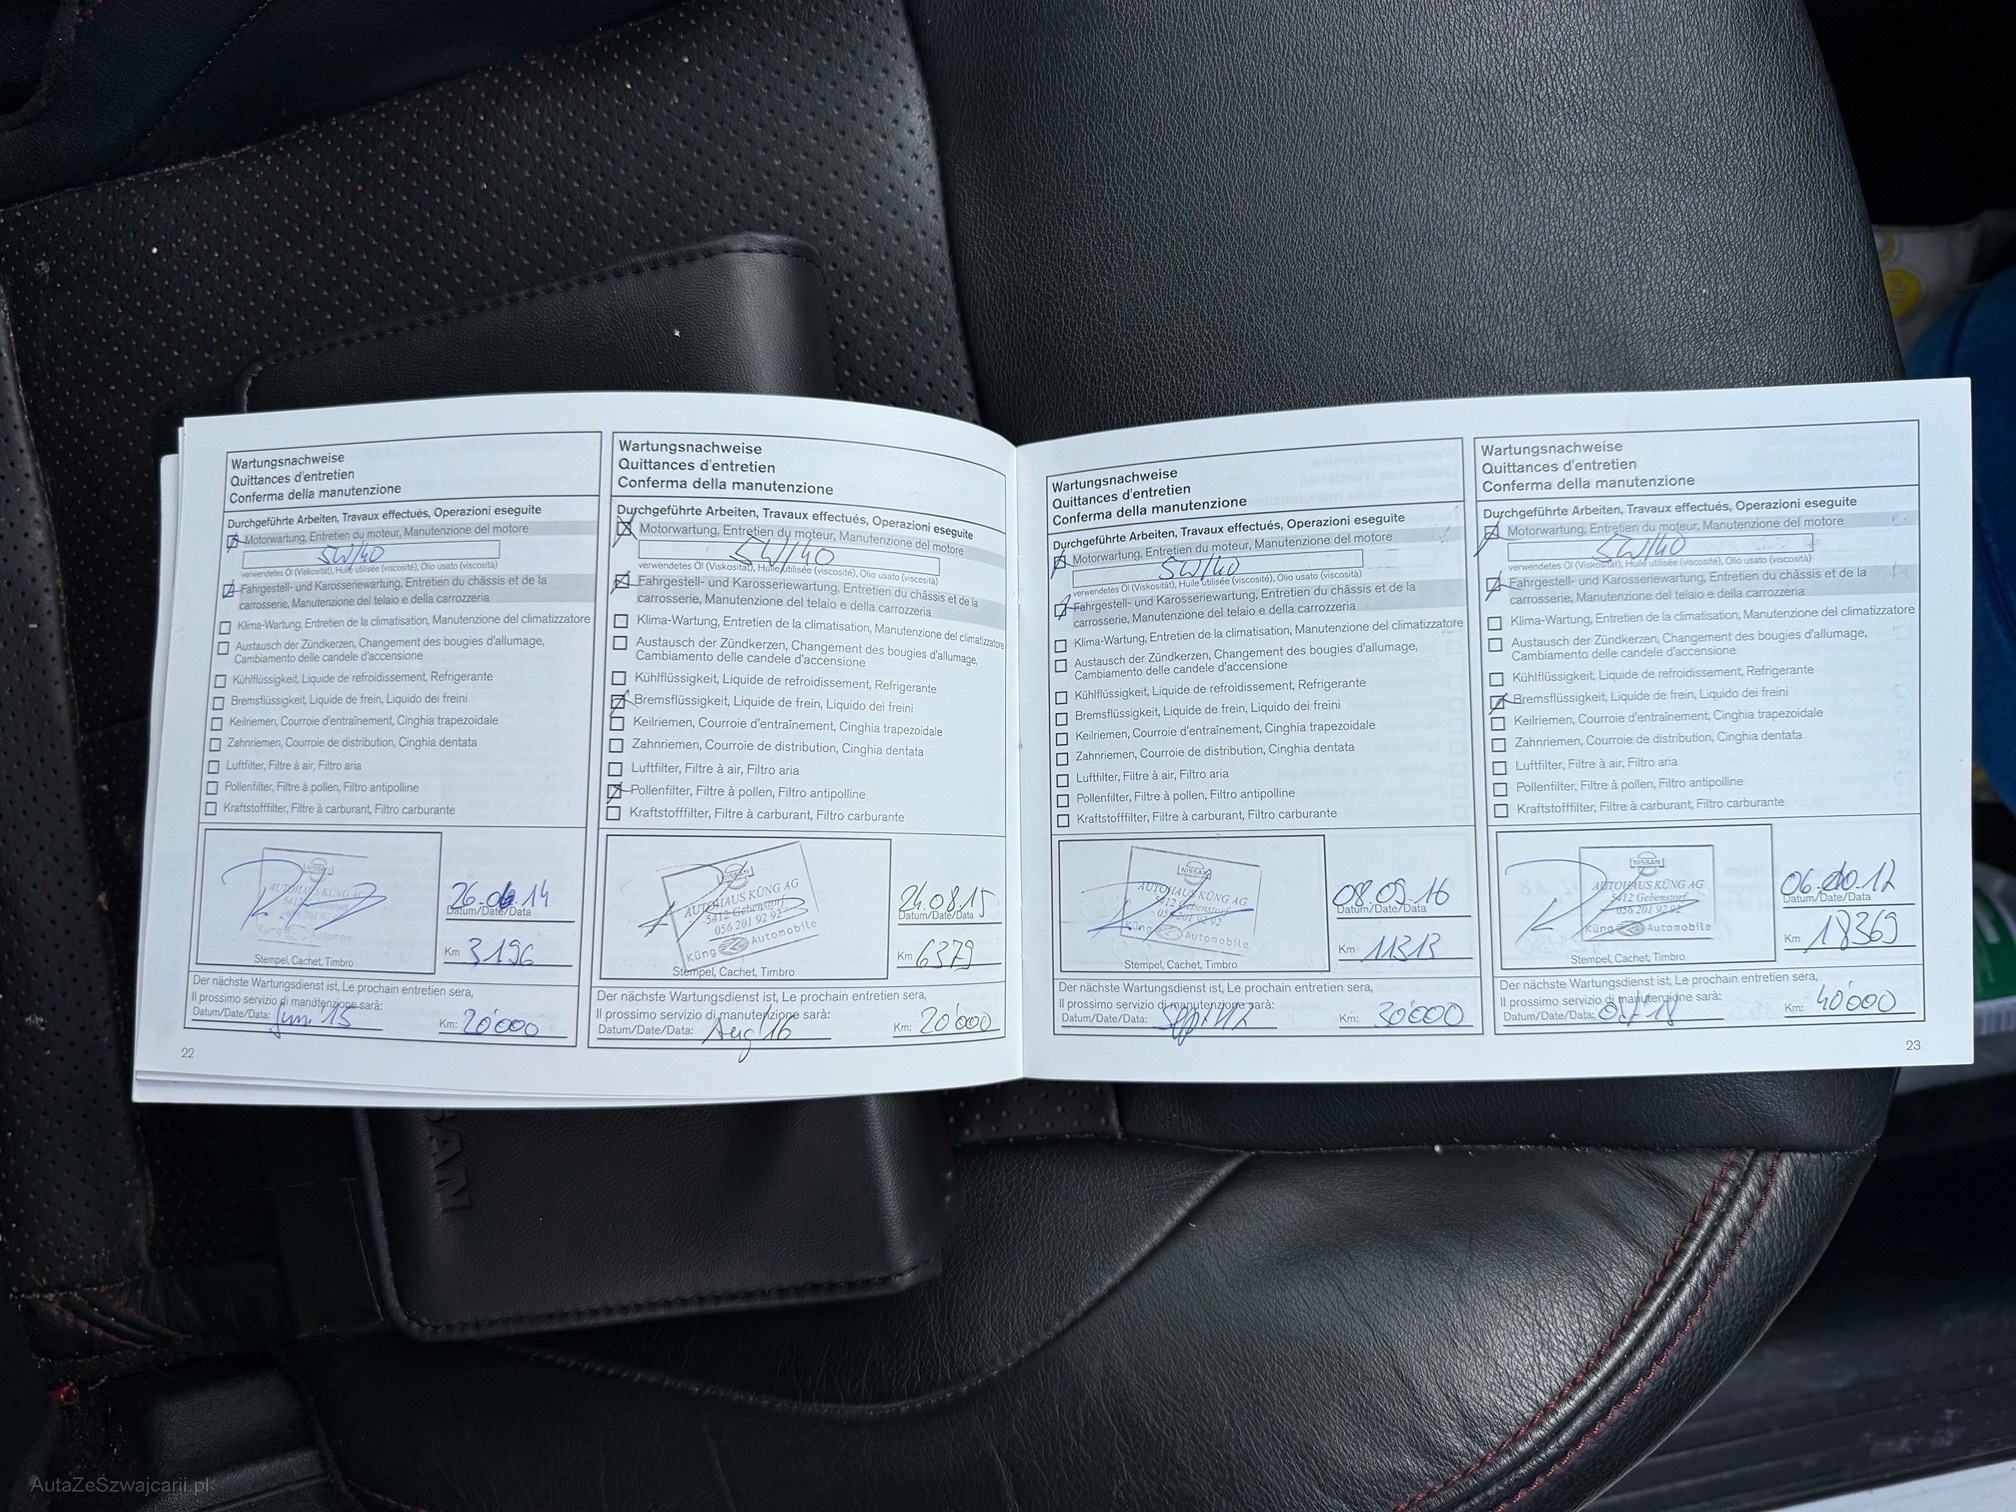 Wartungsnachweise
Quittances d'entretien
Conferma della manutenzione
Durchgeführte Arbeiten, Travaux effectués, Operazioni eseguite
Motorwartung, Entretien du moteur, Manutenzione del motore
5W/40
verwendetes Öl (Viskosität), Huile utilisée (viscosité), Olio usato (viscosità)
Fahrgestell- und Karosseriewartung, Entretien du châssis et de la
carrosserie, Manutenzione del telaio e della carrozzeria
Klima-Wartung, Entretien de la climatisation, Manutenzione del climatizzatore
Austausch der Zündkerzen, Changement des bougies d'allumage,
Cambiamento delle candele d'accensione
Kühlflüssigkeit, Liquide de refroidissement, Refrigerante
Bremsflüssigkeit, Liquide de frein, Liquido dei freini
Keilriemen, Courroie d'entraînement, Cinghia trapezoidale
Zahnriemen, Courroie de distribution, Cinghia dentata
Luftfilter, Filtre à air, Filtro aria
Pollenfilter, Filtre à pollen, Filtro antipolline
Kraftstofffilter, Filtre à carburant, Filtro carburante
NISSAN
AUTOHAUS KÜNG AG
5412 Gebenstorf
056 201 92 92
Küng Automobile
Stempel, Cachet, Timbro
Datum/Date/Data
Km 3196
Der nächste Wartungsdienst ist, Le prochain entretien sera,
Il prossimo servizio di manutenzione sarà:
Datum/Date/Data: Jun. 15 Km: 20'000
22
Wartungsnachweise
Quittances d'entretien
Conferma della manutenzione
Durchgeführte Arbeiten, Travaux effectués, Operazioni eseguite
Motorwartung, Entretien du moteur, Manutenzione del motore
5W/40
verwendetes Öl (Viskosität), Huile utilisée (viscosité), Olio usato (viscosità)
Fahrgestell- und Karosseriewartung, Entretien du châssis et de la
carrosserie, Manutenzione del telaio e della carrozzeria
Klima-Wartung, Entretien de la climatisation, Manutenzione del climatizzatore
Austausch der Zündkerzen, Changement des bougies d'allumage,
Cambiamento delle candele d'accensione
Kühlflüssigkeit, Liquide de refroidissement, Refrigerante
Bremsflüssigkeit, Liquide de frein, Liquido dei freini
Keilriemen, Courroie d'entraînement, Cinghia trapezoidale
Zahnriemen, Courroie de distribution, Cinghia dentata
Luftfilter, Filtre à air, Filtro aria
Pollenfilter, Filtre à pollen, Filtro antipolline
Kraftstofffilter, Filtre à carburant, Filtro carburante
NISSAN
AUTOHAUS KÜNG AG
5412 Gebenstorf
056 201 92 92
Küng Automobile
Stempel, Cachet, Timbro
24.08.15
Datum/Date/Data
Km 6379
Der nächste Wartungsdienst ist, Le prochain entretien sera,
Il prossimo servizio di manutenzione sarà:
Datum/Date/Data: Aug 16 Km: 20'000
Wartungsnachweise
Quittances d'entretien
Conferma della manutenzione
Durchgeführte Arbeiten, Travaux effectués, Operazioni eseguite
Motorwartung, Entretien du moteur, Manutenzione del motore
5W/40
verwendetes Öl (Viskosität), Huile utilisée (viscosité), Olio usato (viscosità)
Fahrgestell- und Karosseriewartung, Entretien du châssis et de la
carrosserie, Manutenzione del telaio e della carrozzeria
Klima-Wartung, Entretien de la climatisation, Manutenzione del climatizzatore
Austausch der Zündkerzen, Changement des bougies d'allumage,
Cambiamento delle candele d'accensione
Kühlflüssigkeit, Liquide de refroidissement, Refrigerante
Bremsflüssigkeit, Liquide de frein, Liquido dei freini
Keilriemen, Courroie d'entraînement, Cinghia trapezoidale
Zahnriemen, Courroie de distribution, Cinghia dentata
Luftfilter, Filtre à air, Filtro aria
Pollenfilter, Filtre à pollen, Filtro antipolline
Kraftstofffilter, Filtre à carburant, Filtro carburante
NISSAN
AUTOHAUS KÜNG AG
5412 Gebenstorf
056 201 92 92
Küng Automobile
Stempel, Cachet, Timbro
08.09.16
Datum/Date/Data
Km 11313
Der nächste Wartungsdienst ist, Le prochain entretien sera,
Il prossimo servizio di manutenzione sarà:
Datum/Date/Data: Sept 17 Km: 30'000
Wartungsnachweise
Quittances d'entretien
Conferma della manutenzione
Durchgeführte Arbeiten, Travaux effectués, Operazioni eseguite
Motorwartung, Entretien du moteur, Manutenzione del motore
5W/40
verwendetes Öl (Viskosität), Huile utilisée (viscosité), Olio usato (viscosità)
Fahrgestell- und Karosseriewartung, Entretien du châssis et de la
carrosserie, Manutenzione del telaio e della carrozzeria
Klima-Wartung, Entretien de la climatisation, Manutenzione del climatizzatore
Austausch der Zündkerzen, Changement des bougies d'allumage,
Cambiamento delle candele d'accensione
Kühlflüssigkeit, Liquide de refroidissement, Refrigerante
Bremsflüssigkeit, Liquide de frein, Liquido dei freini
Keilriemen, Courroie d'entraînement, Cinghia trapezoidale
Zahnriemen, Courroie de distribution, Cinghia dentata
Luftfilter, Filtre à air, Filtro aria
Pollenfilter, Filtre à pollen, Filtro antipolline
Kraftstofffilter, Filtre à carburant, Filtro carburante
NISSAN
AUTOHAUS KÜNG AG
5412 Gebenstorf
056 201 92 92
Küng Automobile
Stempel, Cachet, Timbro
Datum/Date/Data
Km 18369
Der nächste Wartungsdienst ist, Le prochain entretien sera,
Il prossimo servizio di manutenzione sarà:
Datum/Date/Data: Km: 40'000
23
AutaZeSzwajcarii.pl